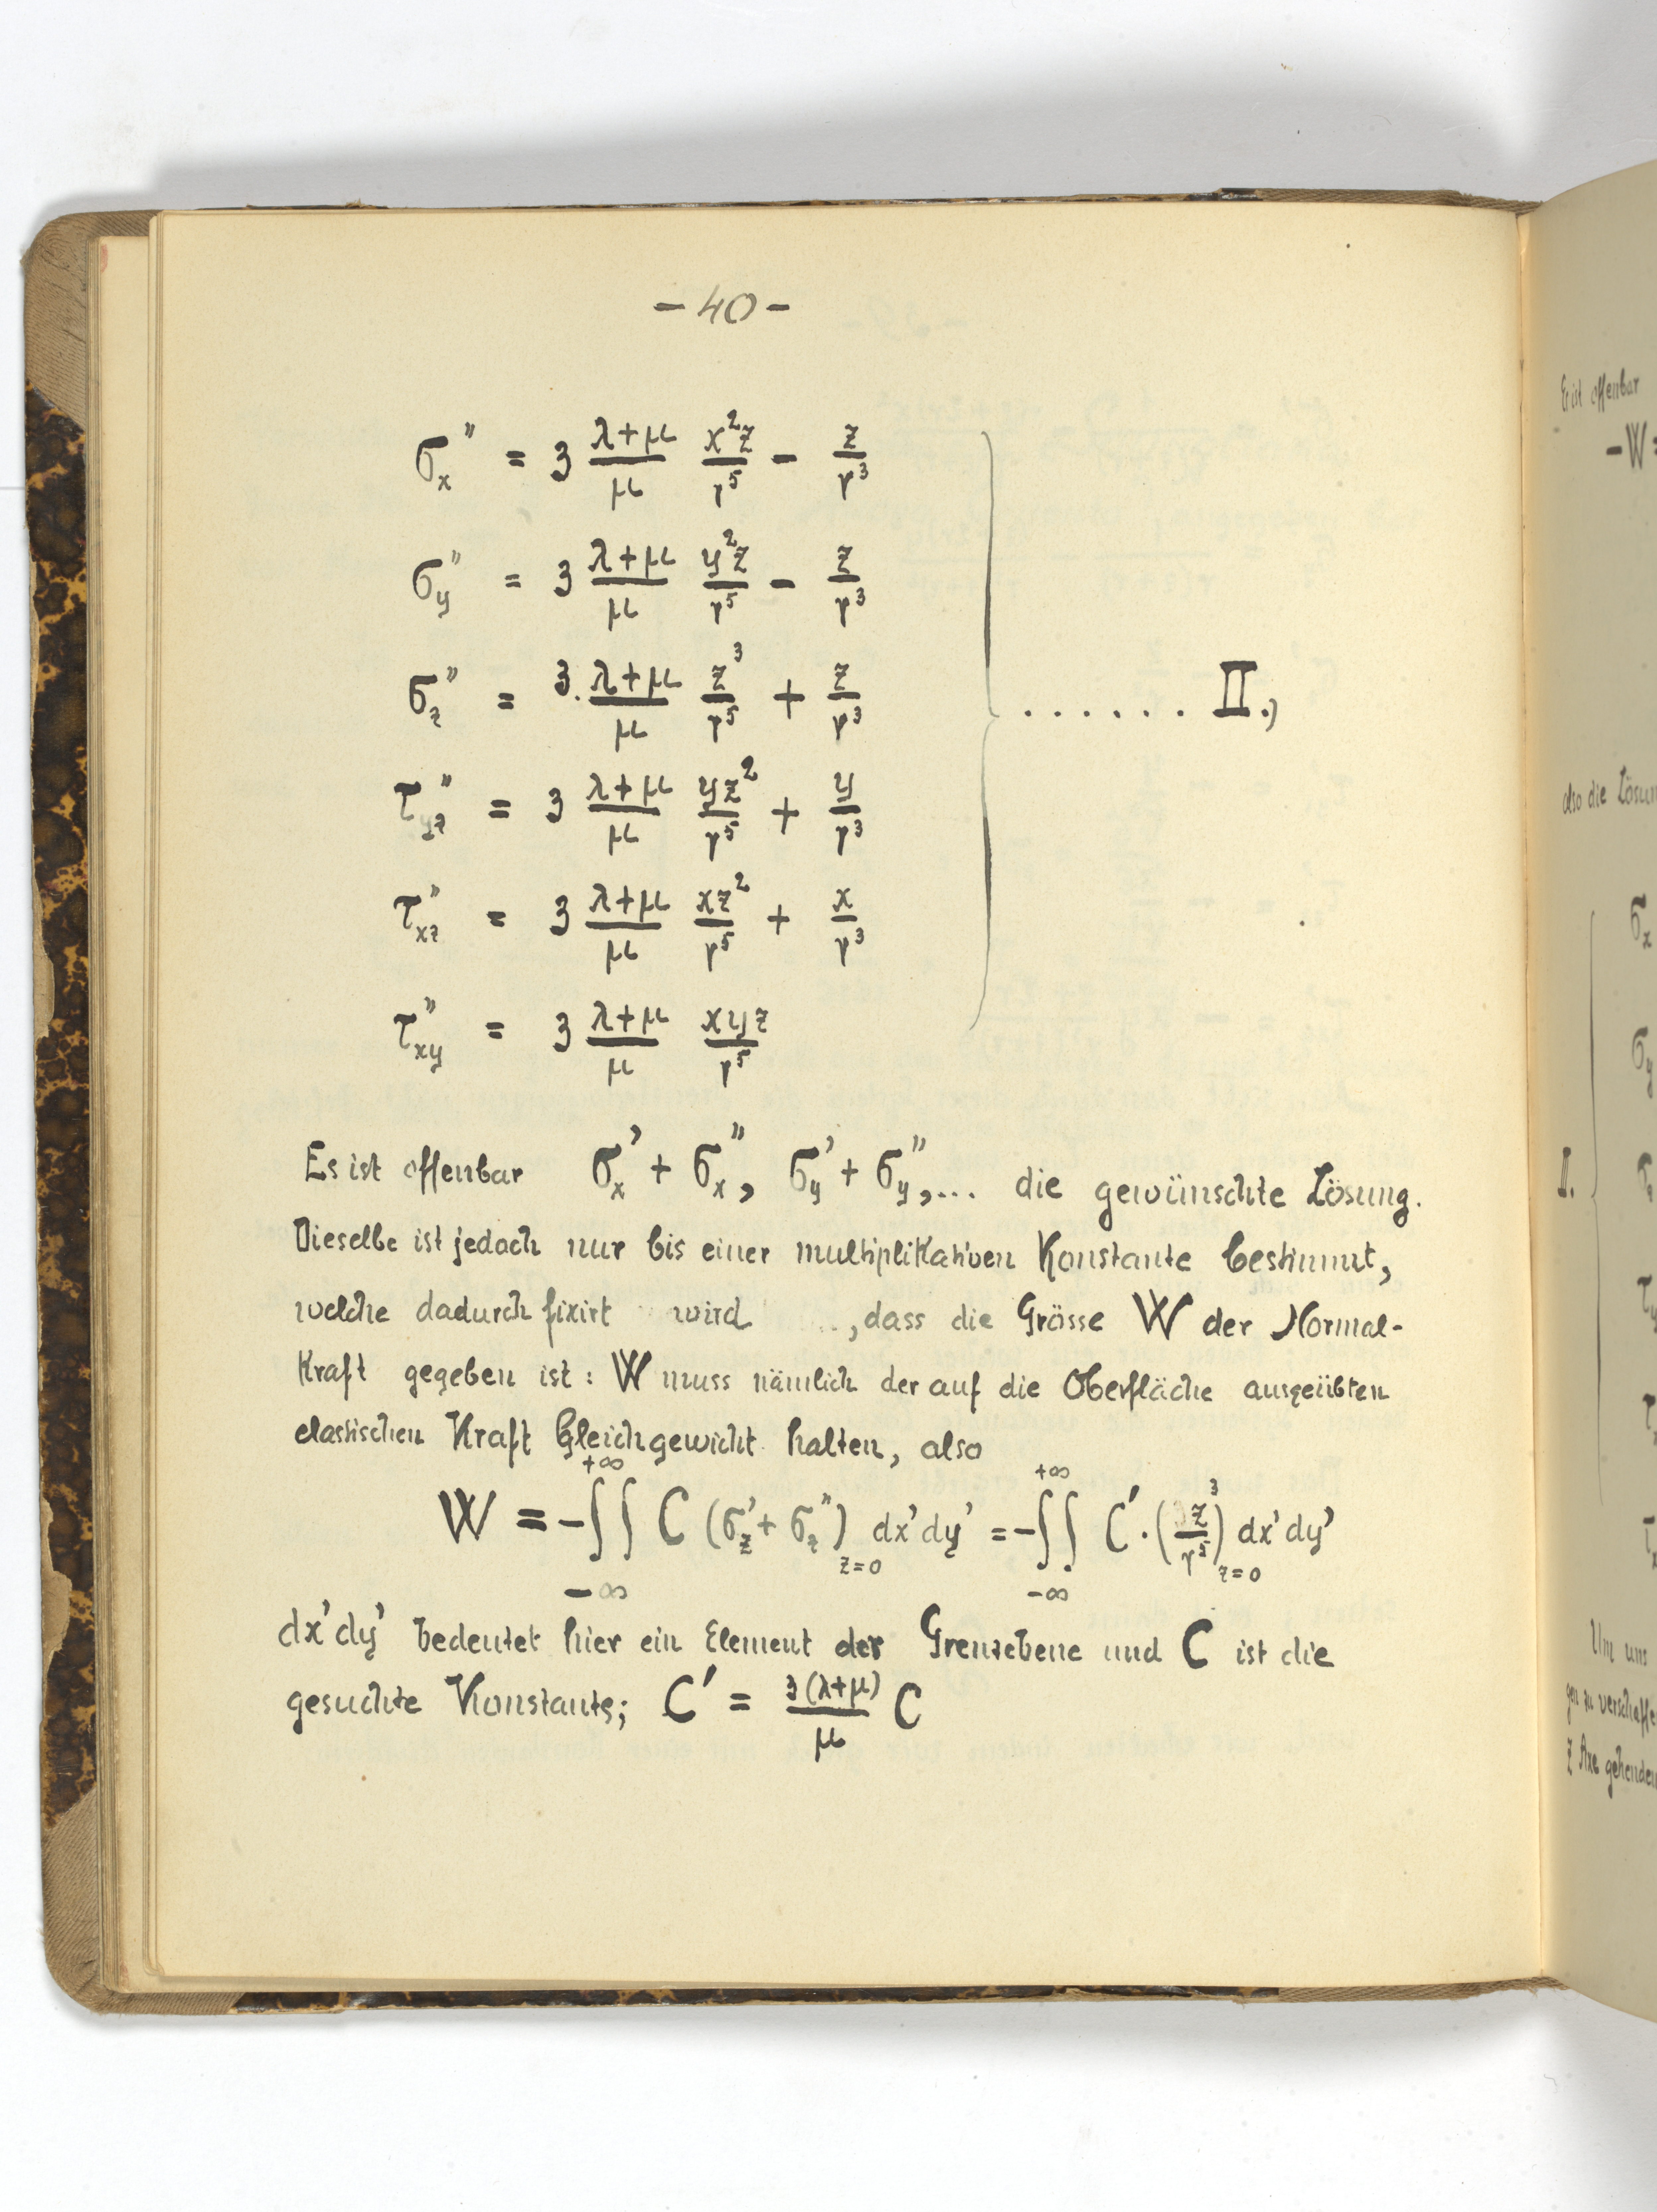 - 40 -
σx" = 3 (λ+μ)/μ x²z/r⁵ - z/r³
σy" = 3 (λ+μ)/μ y²z/r⁵ - z/r³
σz" = 3. (λ+μ)/μ z³/r⁵ + z/r³ ...... II.)
τyz" = 3 (λ+μ)/μ yz²/r⁵ + y/r³
τxz" = 3 (λ+μ)/μ xz²/r⁵ + x/r³
τxy" = 3 (λ+μ)/μ xyz/r⁵
Es ist offenbar σx' + σx", σy' + σy",... die gewünschte Lösung.
Dieselbe ist jedoch nur bis einer multiplikativen Konstante bestimmt,
welche dadurch fixirt wird , dass die Grösse W der Normal-
kraft gegeben ist: W muss nämlich der auf die Oberfläche ausgeübten
elastischen Kraft Gleichgewicht halten, also
W = -∫∫ C (σz' + σz")z=0 dx'dy' = -∫∫ C'·(z³/r⁵)z=0 dx'dy'
+∞ -∞ +∞ -∞
dx'dy' bedeutet hier ein Element der Grenzebene und C ist die
gesuchte Konstante; C' = 3(λ+μ)/μ C
Es ist offenbar
-W =
also die Lösun
σx
σy
II.
Um uns
gen zu verschaffe
Z Axe gehenden